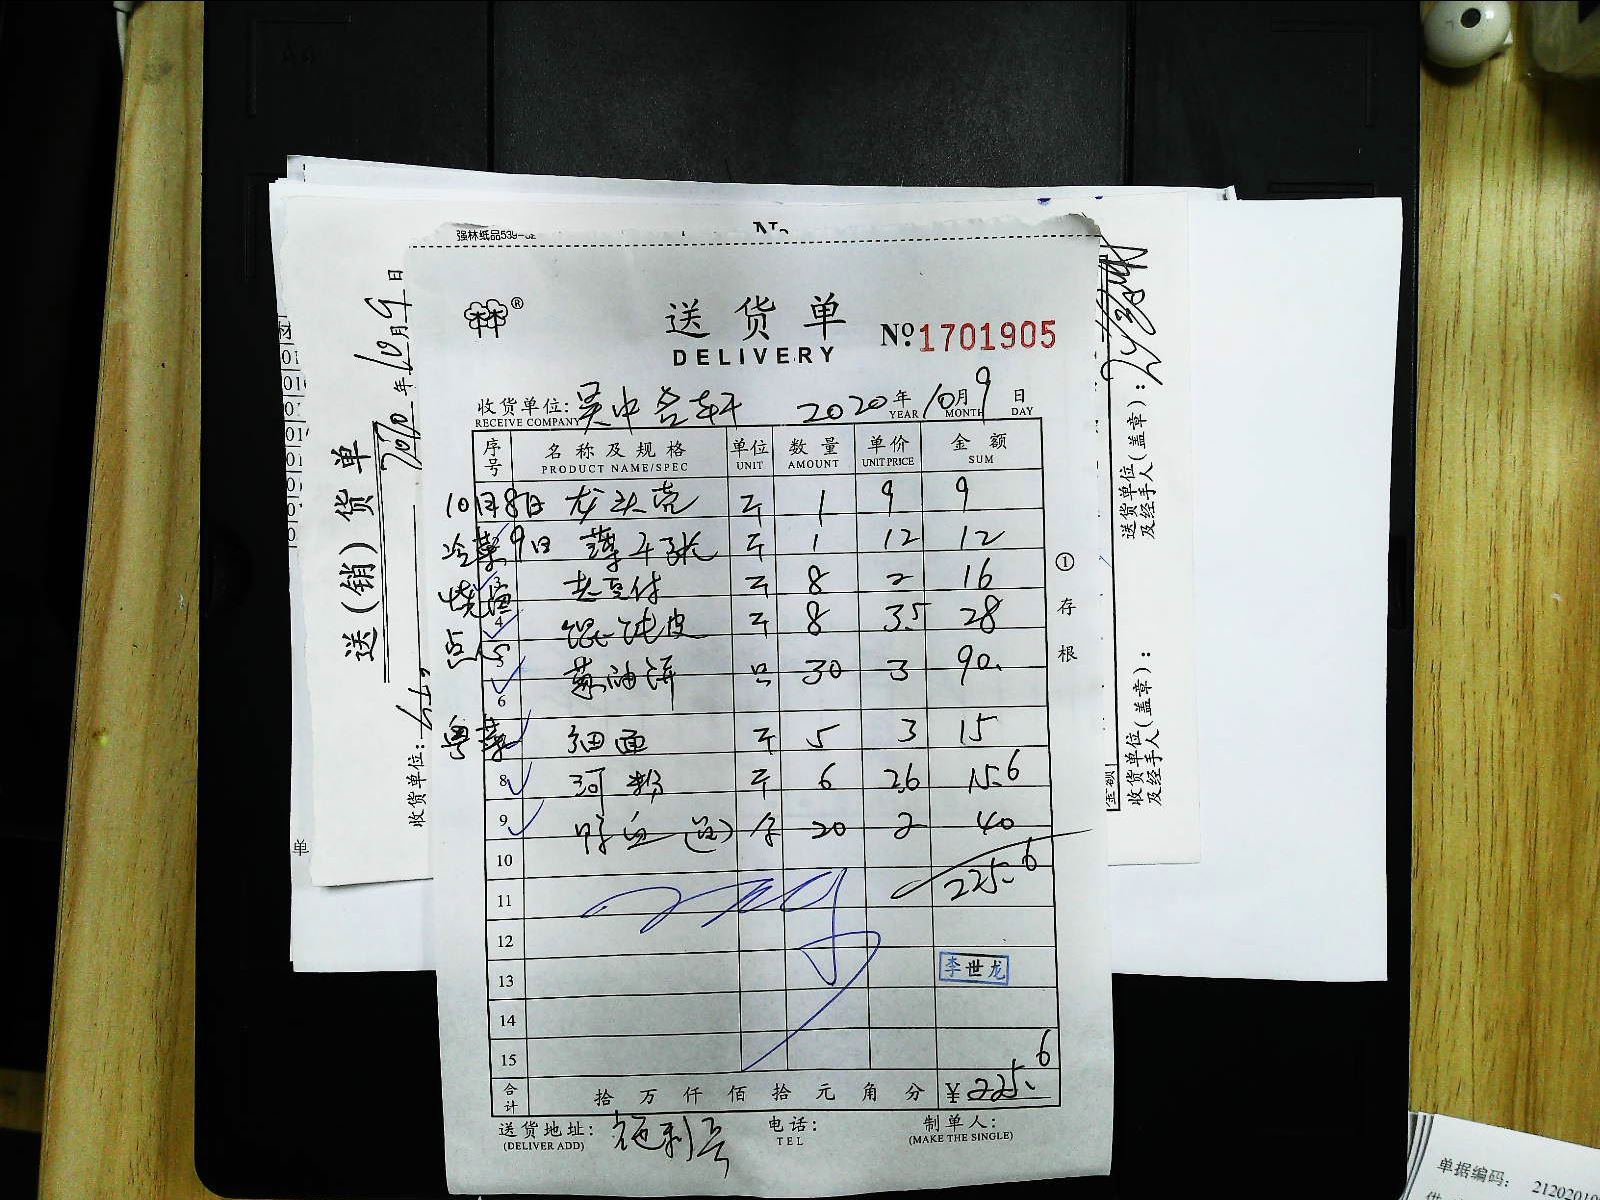 强林纸品539-02
送货单
DELIVERY
№1701905
收货单位: 吴中 2020年10月9日
RECEIVE COMPANY YEAR MONTH DAY
序号 名称及规格 单位 数量 单价 金额
PRODUCT NAME/SPEC UNIT AMOUNT UNIT PRICE SUM
10月8日 龙头壳 斤 1 9 9
冷菜 9日 薄千张 斤 1 12 12
3 老豆付 斤 8 2 16
4 馄饨皮 斤 8 3.5 28
点心 5 葱油饼 只 30 3 90.
6
粤菜 细面 斤 5 3 15
8 河粉 斤 6 2.6 15.6
9 鸭血 20 2 40
10
11 225.6
12
13 李世龙
14
15
合计 拾万仟佰拾元角分 ¥225.6
送货地址: 电话: 制单人:
(DELIVER ADD) TEL (MAKE THE SINGLE)
①存根
送(销)货单
2020年10月9日
收货单位:
送货单位(盖章):
及经手人
收货单位(盖章):
及经手人
金额
单据编码: